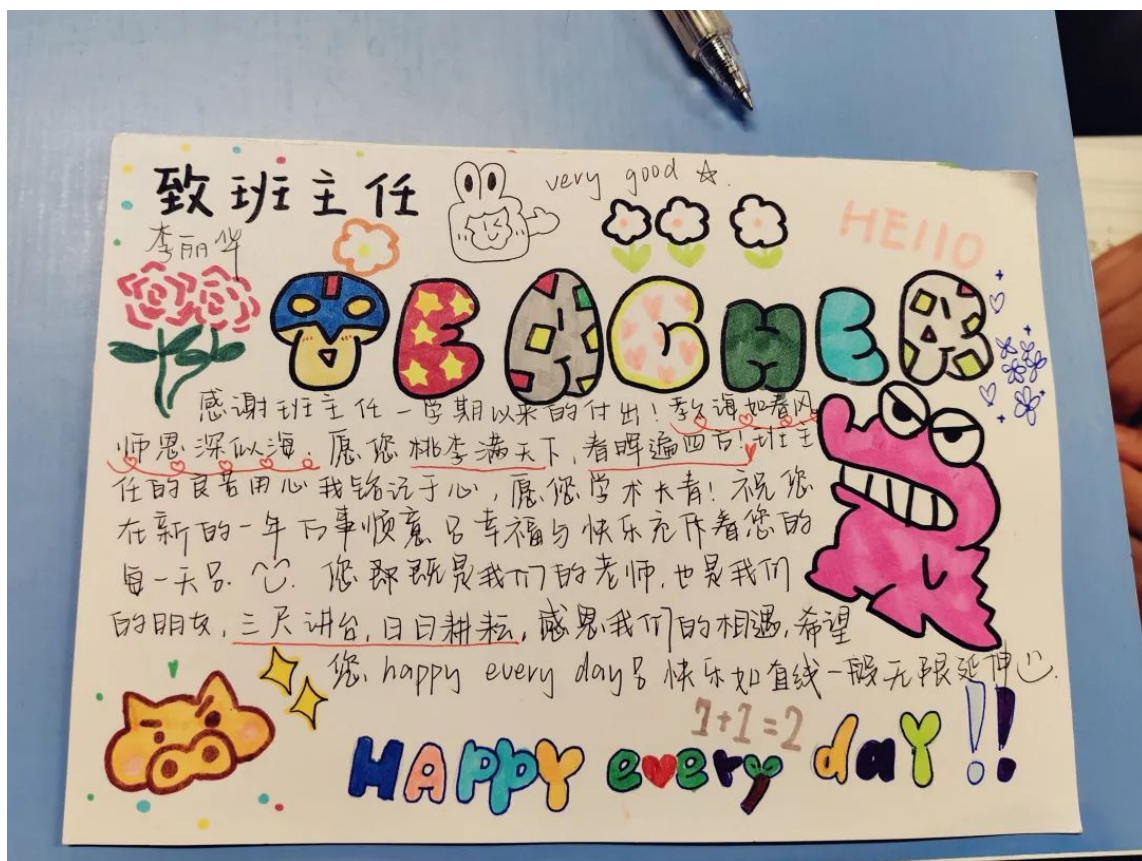 致班主任
very good ☆.
李丽华
HEllO
TEACHER
感谢班主任一学期以来的付出！教诲如春风，
师恩深似海。愿您桃李满天下，春晖遍四方！班主
任的良苦用心我铭记于心，愿您学术长青！祝您
在新的一年万事顺意，幸福与快乐充斥着您的
每一天。您即既是我们的老师，也是我们
的朋友，三尺讲台，日日耕耘，感恩我们的相遇，希望
您 happy every day 快乐如直线一般无限延伸
1+1=2
HAppY every daY!!